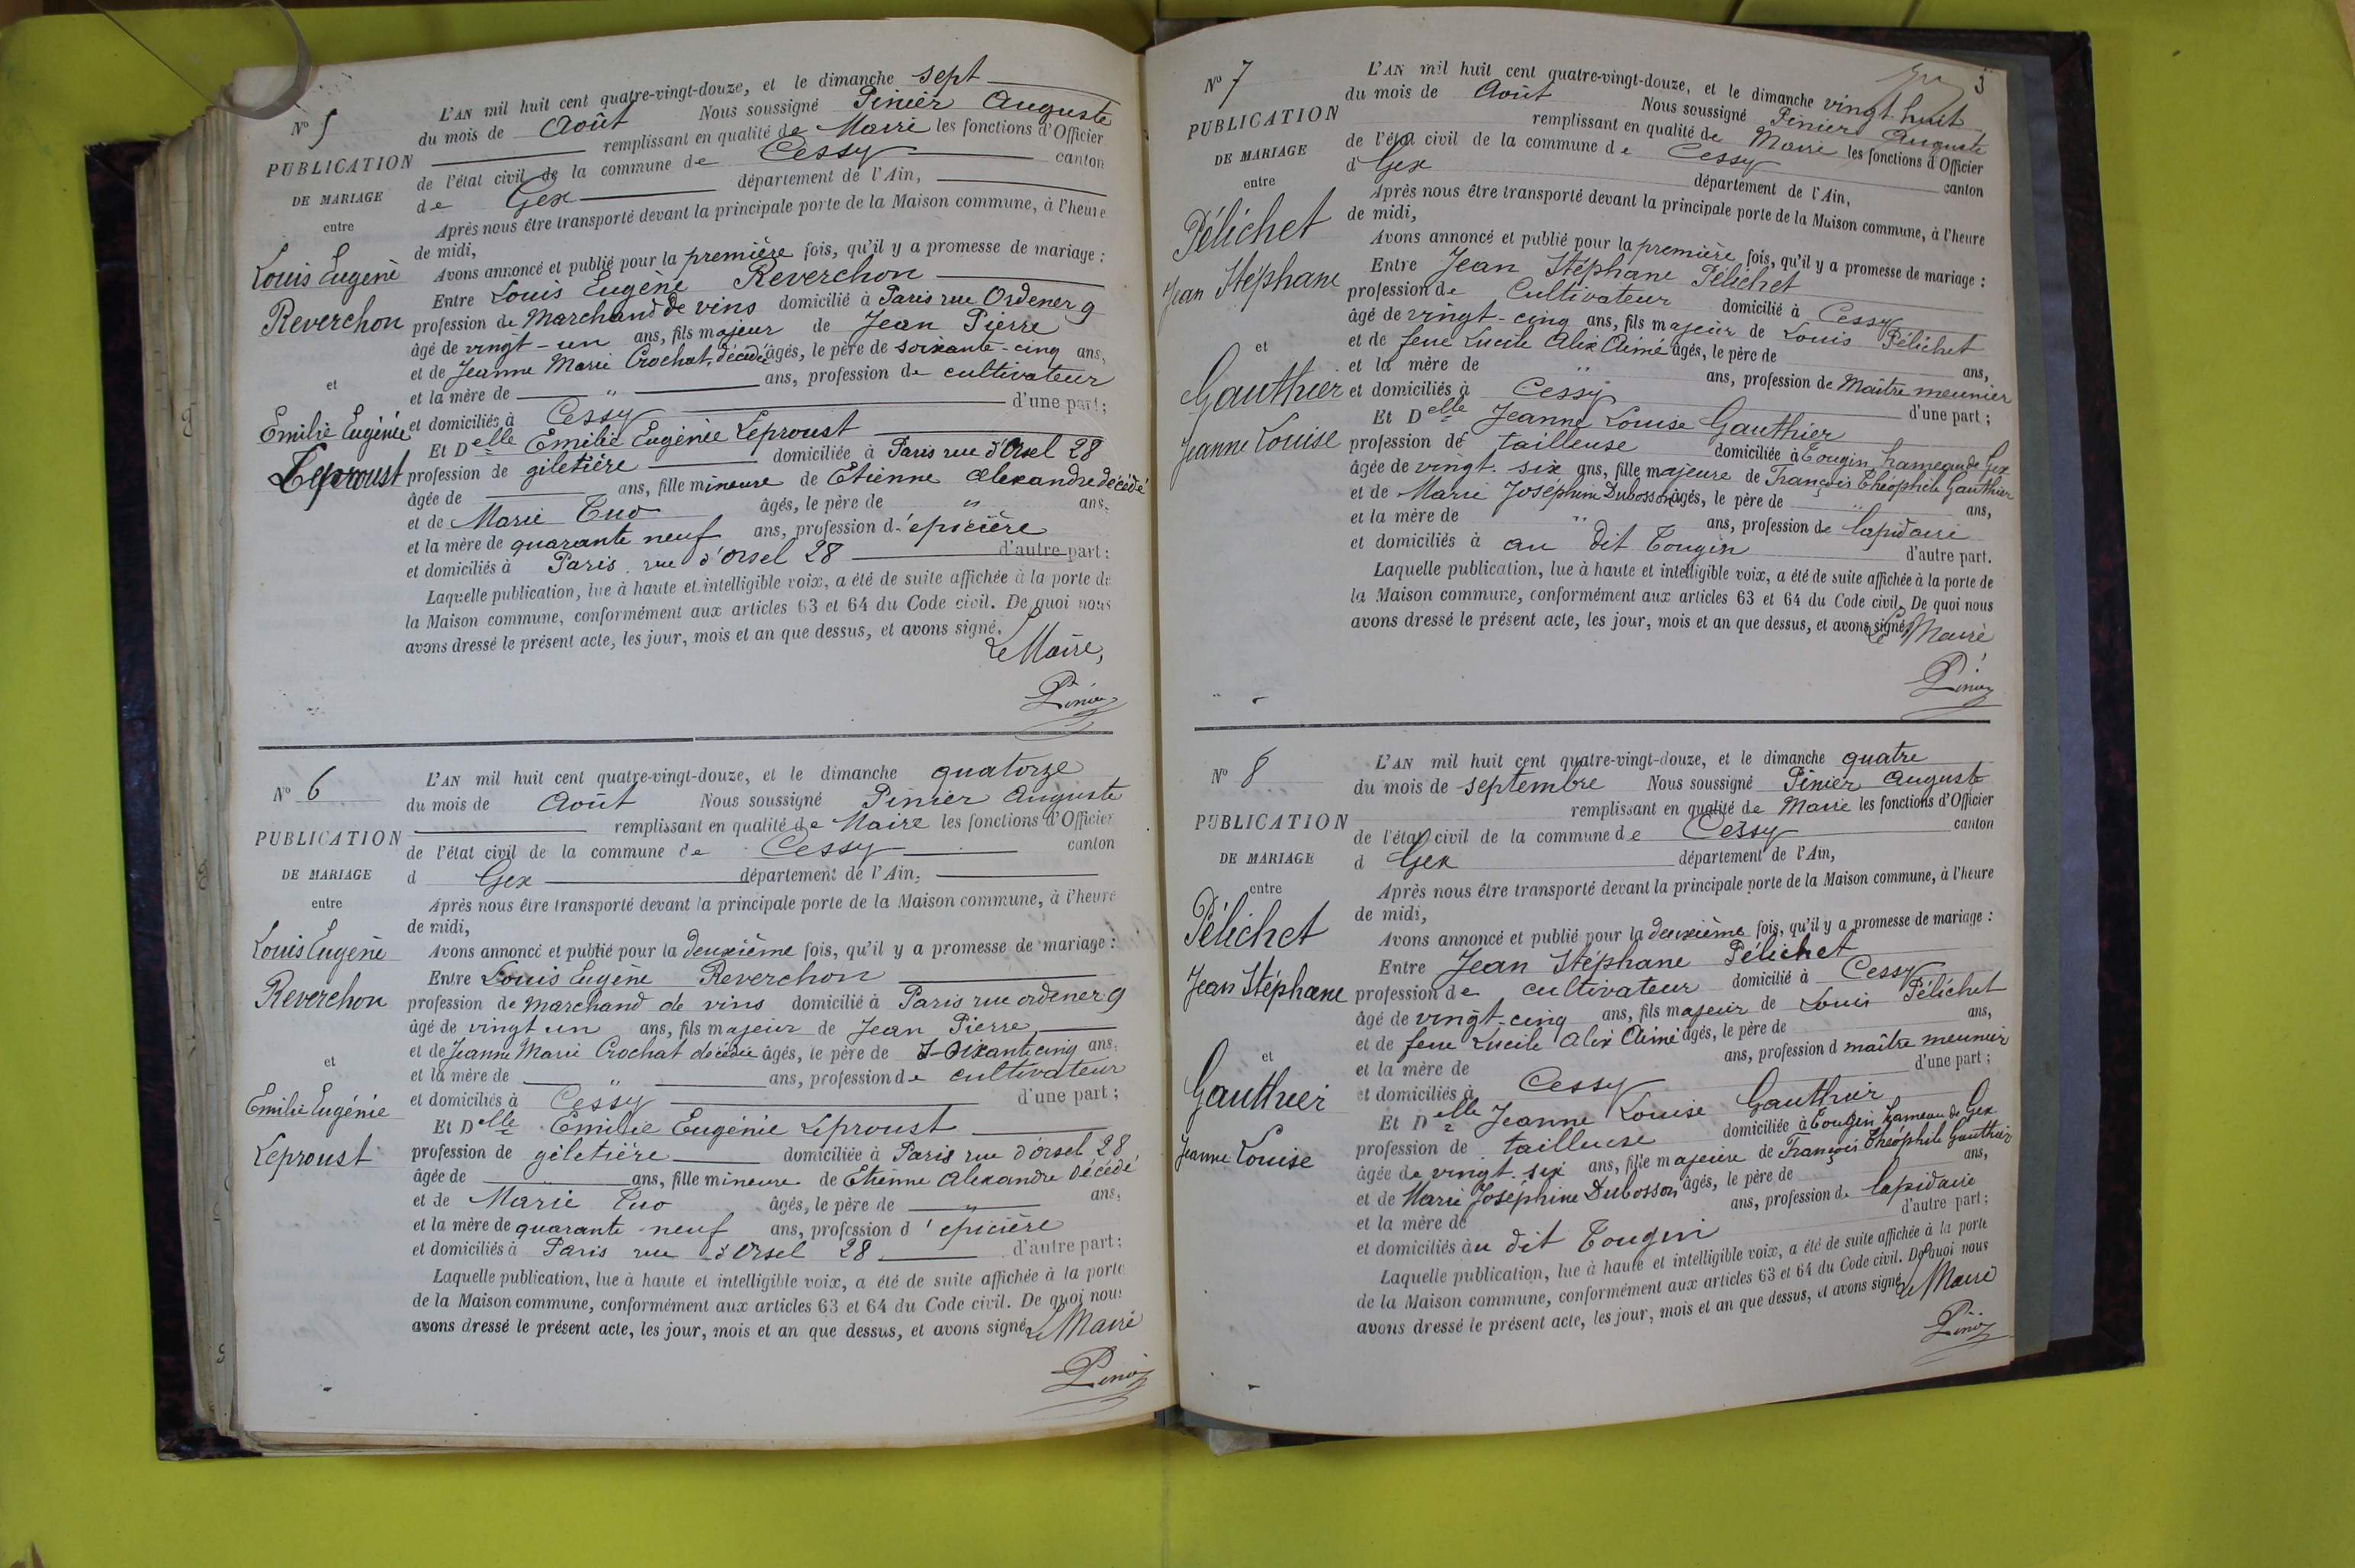 N° 5
PUBLICATION
DE MARIAGE
entre
Louis Eugène
Reverchon
et
Emilie Eugénie
Leproust
L'AN mil huit cent quatre-vingt-douze, et le dimanche sept
du mois de Août Nous soussigné Pinier Auguste
remplissant en qualité de Maire les fonctions d'Officier
de l'état civil de la commune de Cessy canton
de Gex département de l'Ain,
Après nous être transporté devant la principale porte de la Maison commune, à l'heure
de midi,
Avons annoncé et publié pour la première fois, qu'il y a promesse de mariage :
Entre Louis Eugène Reverchon
profession de Marchand de vins domicilié à Paris rue Ordener 9
âgé de vingt-un ans, fils majeur de Jean Pierre
et de Jeanne Marie Crochat, décédée âgés, le père de soixante-cinq ans,
et la mère de " ans, profession de cultivateur
et domiciliés à Cessy d'une part;
Et Delle Emilie Eugénie Leproust
profession de giletière domiciliée à Paris rue d'Orsel 28
âgée de ans, fille mineure de Etienne Alexandre décédé
et de Marie Tuo âgés, le père de " ans,
et la mère de quarante neuf ans, profession d'épicière
et domiciliés à Paris rue d'Orsel 28 d'autre part;
Laquelle publication, lue à haute et intelligible voix, a été de suite affichée à la porte de
la Maison commune, conformément aux articles 63 et 64 du Code civil. De quoi nous
avons dressé le présent acte, les jour, mois et an que dessus, et avons signé.
Le Maire,
Pinier
N° 6
PUBLICATION
DE MARIAGE
entre
Louis Eugène
Reverchon
et
Emilie Eugénie
Leproust
L'AN mil huit cent quatre-vingt-douze, et le dimanche quatorze
du mois de Août Nous soussigné Pinier Auguste
remplissant en qualité de Maire les fonctions d'Officier
de l'état civil de la commune de Cessy canton
d Gex département de l'Ain,
Après nous être transporté devant la principale porte de la Maison commune, à l'heure
de midi,
Avons annoncé et publié pour la deuxième fois, qu'il y a promesse de mariage :
Entre Louis Eugène Reverchon
profession de marchand de vins domicilié à Paris rue ordener 9
âgé de vingt un ans, fils majeur de Jean Pierre
et de Jeanne Marie Crochat décédée âgés, le père de soixante cinq ans,
et la mère de " ans, profession de cultivateur
et domiciliés à Cessy d'une part;
Et Delle Emilie Eugénie Leproust
profession de giletière domiciliée à Paris rue d'orsel 28
âgée de ans, fille mineure de Etienne Alexandre Décédé
et de Marie Tuo âgés, le père de " ans,
et la mère de quarante-neuf ans, profession d'épicière
et domiciliés à Paris rue d'Orsel 28 d'autre part;
Laquelle publication, lue à haute et intelligible voix, a été de suite affichée à la porte
de la Maison commune, conformément aux articles 63 et 64 du Code civil. De quoi nous
avons dressé le présent acte, les jour, mois et an que dessus, et avons signé, Le Maire
Pinier
3
N° 7
PUBLICATION
DE MARIAGE
entre
Pélichet
Jean Stéphane
et
Gauthier
Jeanne Louise
L'AN mil huit cent quatre-vingt-douze, et le dimanche vingt-huit
du mois de Août Nous soussigné Pinier Auguste
remplissant en qualité de Maire les fonctions d'Officier
de l'état civil de la commune de Cessy canton
d Gex département de l'Ain,
Après nous être transporté devant la principale porte de la Maison commune, à l'heure
de midi,
Avons annoncé et publié pour la première fois, qu'il y a promesse de mariage :
Entre Jean Stéphane Pélichet
profession de Cultivateur domicilié à Cessy
âgé de vingt-cinq ans, fils majeur de Louis Pélichet
et de feue Lucile Alix Aimé âgés, le père de ans,
et la mère de " ans, profession de Maître meunier
et domiciliés à Cessy d'une part;
Et Delle Jeanne Louise Gauthier
profession de tailleuse domiciliée à Tougin, hameau de Gex
âgée de vingt-six ans, fille majeure de François Théophile Gauthier
et de Marie Joséphine Dubosson âgés, le père de " ans,
et la mère de " ans, profession de lapidaire
et domiciliés à au dit Tougin d'autre part.
Laquelle publication, lue à haute et intelligible voix, a été de suite affichée à la porte de
la Maison commune, conformément aux articles 63 et 64 du Code civil. De quoi nous
avons dressé le présent acte, les jour, mois et an que dessus, et avons signé, Le Maire
Pinier
N° 8
PUBLICATION
DE MARIAGE
entre
Pélichet
Jean Stéphane
et
Gauthier
Jeanne Louise
L'AN mil huit cent quatre-vingt-douze, et le dimanche quatre
du mois de septembre Nous soussigné Pinier Auguste
remplissant en qualité de Maire les fonctions d'Officier
de l'état civil de la commune de Cessy canton
d Gex département de l'Ain,
Après nous être transporté devant la principale porte de la Maison commune, à l'heure
de midi,
Avons annoncé et publié pour la deuxième fois, qu'il y a promesse de mariage :
Entre Jean Stéphane Pélichet
profession de cultivateur domicilié à Cessy
âgé de vingt-cinq ans, fils majeur de Louis Pélichet
et de feue Lucile Alix Aimé âgés, le père de ans,
et la mère de ans, profession d maître meunier
et domiciliés à Cessy d'une part;
Et Delle Jeanne Louise Gauthier
profession de tailleuse domiciliée à Tougin, hameau de Gex
âgée de vingt-six ans, fille majeure de François Théophile Gauthier
et de Marie Joséphine Dubosson âgés, le père de ans,
et la mère de ans, profession de lapidaire
et domiciliés au dit Tougin d'autre part;
Laquelle publication, lue à haute et intelligible voix, a été de suite affichée à la porte
de la Maison commune, conformément aux articles 63 et 64 du Code civil. De quoi nous
avons dressé le présent acte, les jour, mois et an que dessus, et avons signé, Le Maire
Pinier